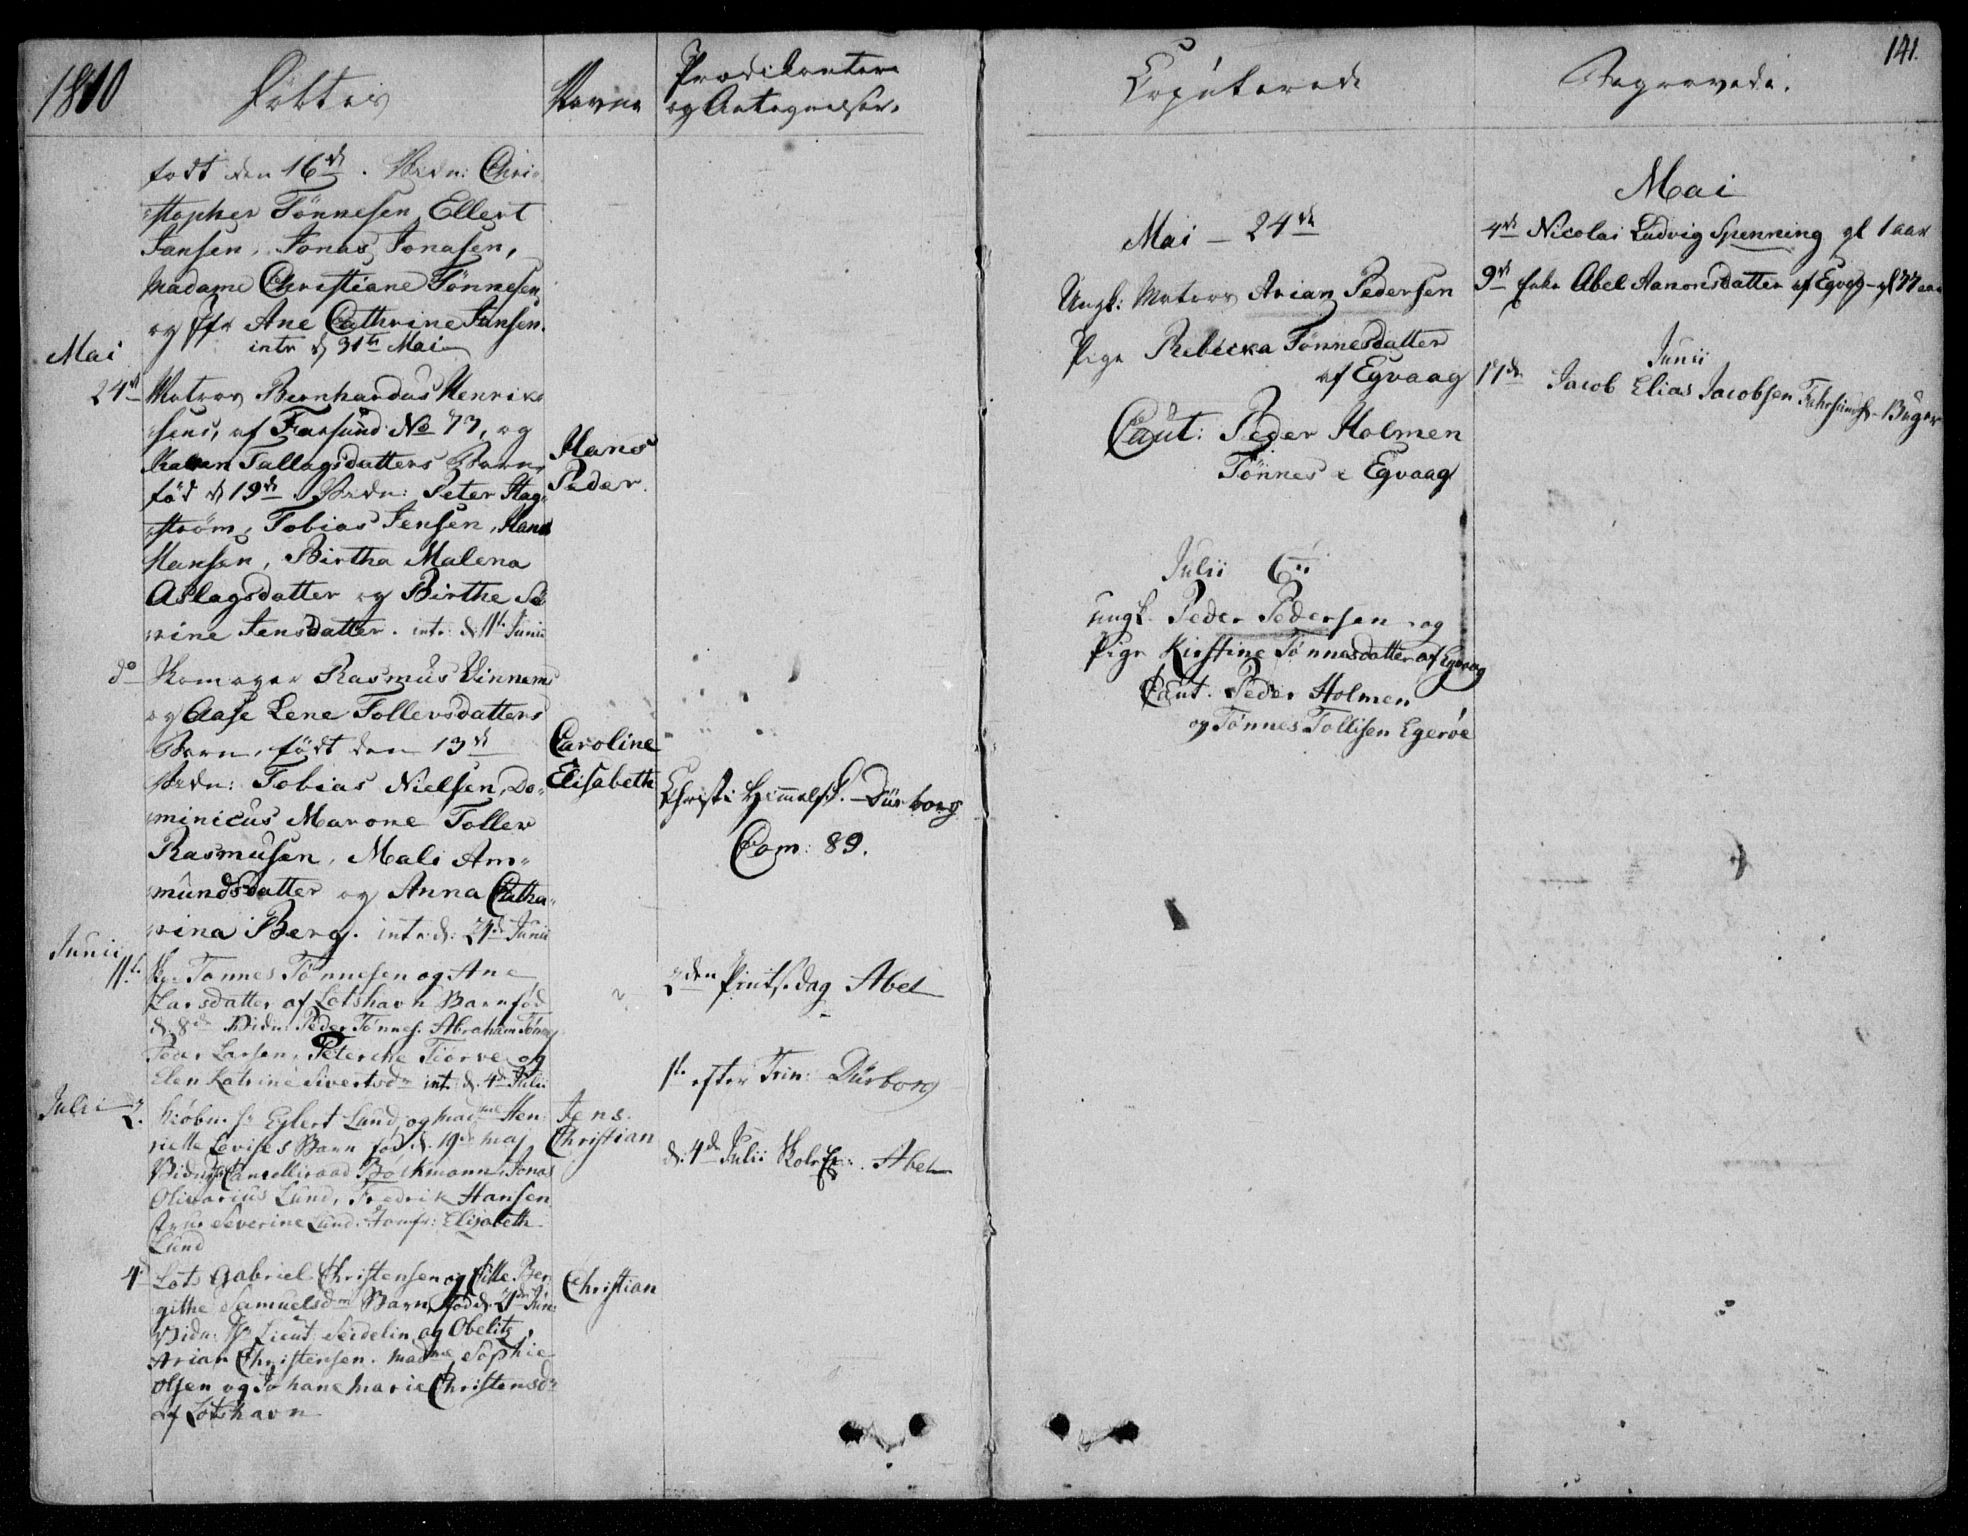 1810
Födte
Navne
Prædikanter
og Antegnelser.
födt den 16de. Vidn: Chri-
stopher Tönnesen, Ellert
Jansen, Jonas Jonasen,
Madame Christiane Tönnesen
og Jfr Ane Cathrine Jansen.
intr d 31te Mai
Mai
24de Matros Bernhardus Henrik-
sens, af Farsund No 73, og
Karen Tallagsdatters Barn,
föd d 19de. Vidn: Peter Hag-
ström, Tobias Jensen, Hans
Hansen, Birtha Malena
Aslagsdatter og Birthe Se-
rine Jensdatter. intr: d. 11te Junii
Hans
Peder.
do Rasmus Vinnems
og Aase Lene Tollevsdatters
Barn, födt den 13de
Vidn: Tobias Nielsen, Do-
minicus Marone Toller
Rasmusen, Mali Am-
mundsdatter og Anna Catha-
rina Berg. intr: d: 21de Junii
Caroline
Elisabeth
Christi Himmelf. Dürborg
Com: 89.
Junii
11te Tønnes Tönnesen og Ane
Larsdatter af Lotshavn Barn föd
d. 8de Vidn: Peder Tønnes. Abraham Tönnes
Peder Larsen, Peterche Tiörve og
Elen Katrine Sivertsdr int. d. 4de Julii
2den Pintsedag Abel
1te efter Trin: Dürborg
Julii 2. Kiöbm. Hr Eylert Lund, og Madme Hen-
riette Lovises Barn föd d. 19de Maj
Vidn: Cancelliraad Bockmann, Jonas
Olivarius Lund, Fredrik Hansen
Fru Severine Lund. Jomfr: Elisabeth
Lund
Jens
Christian
d. 4de Julii Abel
4de Lots Gabriel Christensen og Sille Ber-
githe Samuelsdr Barn, föd d. 21de Jun:
Vidn: Hr Lieut. Seidelin og Obelitz,
Arian Christensen. Madme Sophie
Olsen og Johane Marie Christensdr
af Lotshavn
Christian
141.
Copulerede
Mai – 24de
Ungk: Matros Arian Pedersen
Pige Rebecka Tönnesdatter
af Egvaag
Caut: Peder Holmen
Tönnes Egvaag
Julii 6te
Ungk. Peder Pedersen og
Pige Kirstine Tönnesdatter af Egvaag
Caut. Peder Holmen
og Tönnes Tollisen Egeröe
Begravede.
Mai
4de Nicolai Ludvig Spenning gl 1 aar
9de Enke Abel Aanonsdatter af Egvog gl 77 aar
Junii
17de Jacob Elias Jacobsen Fahrsunds Buger